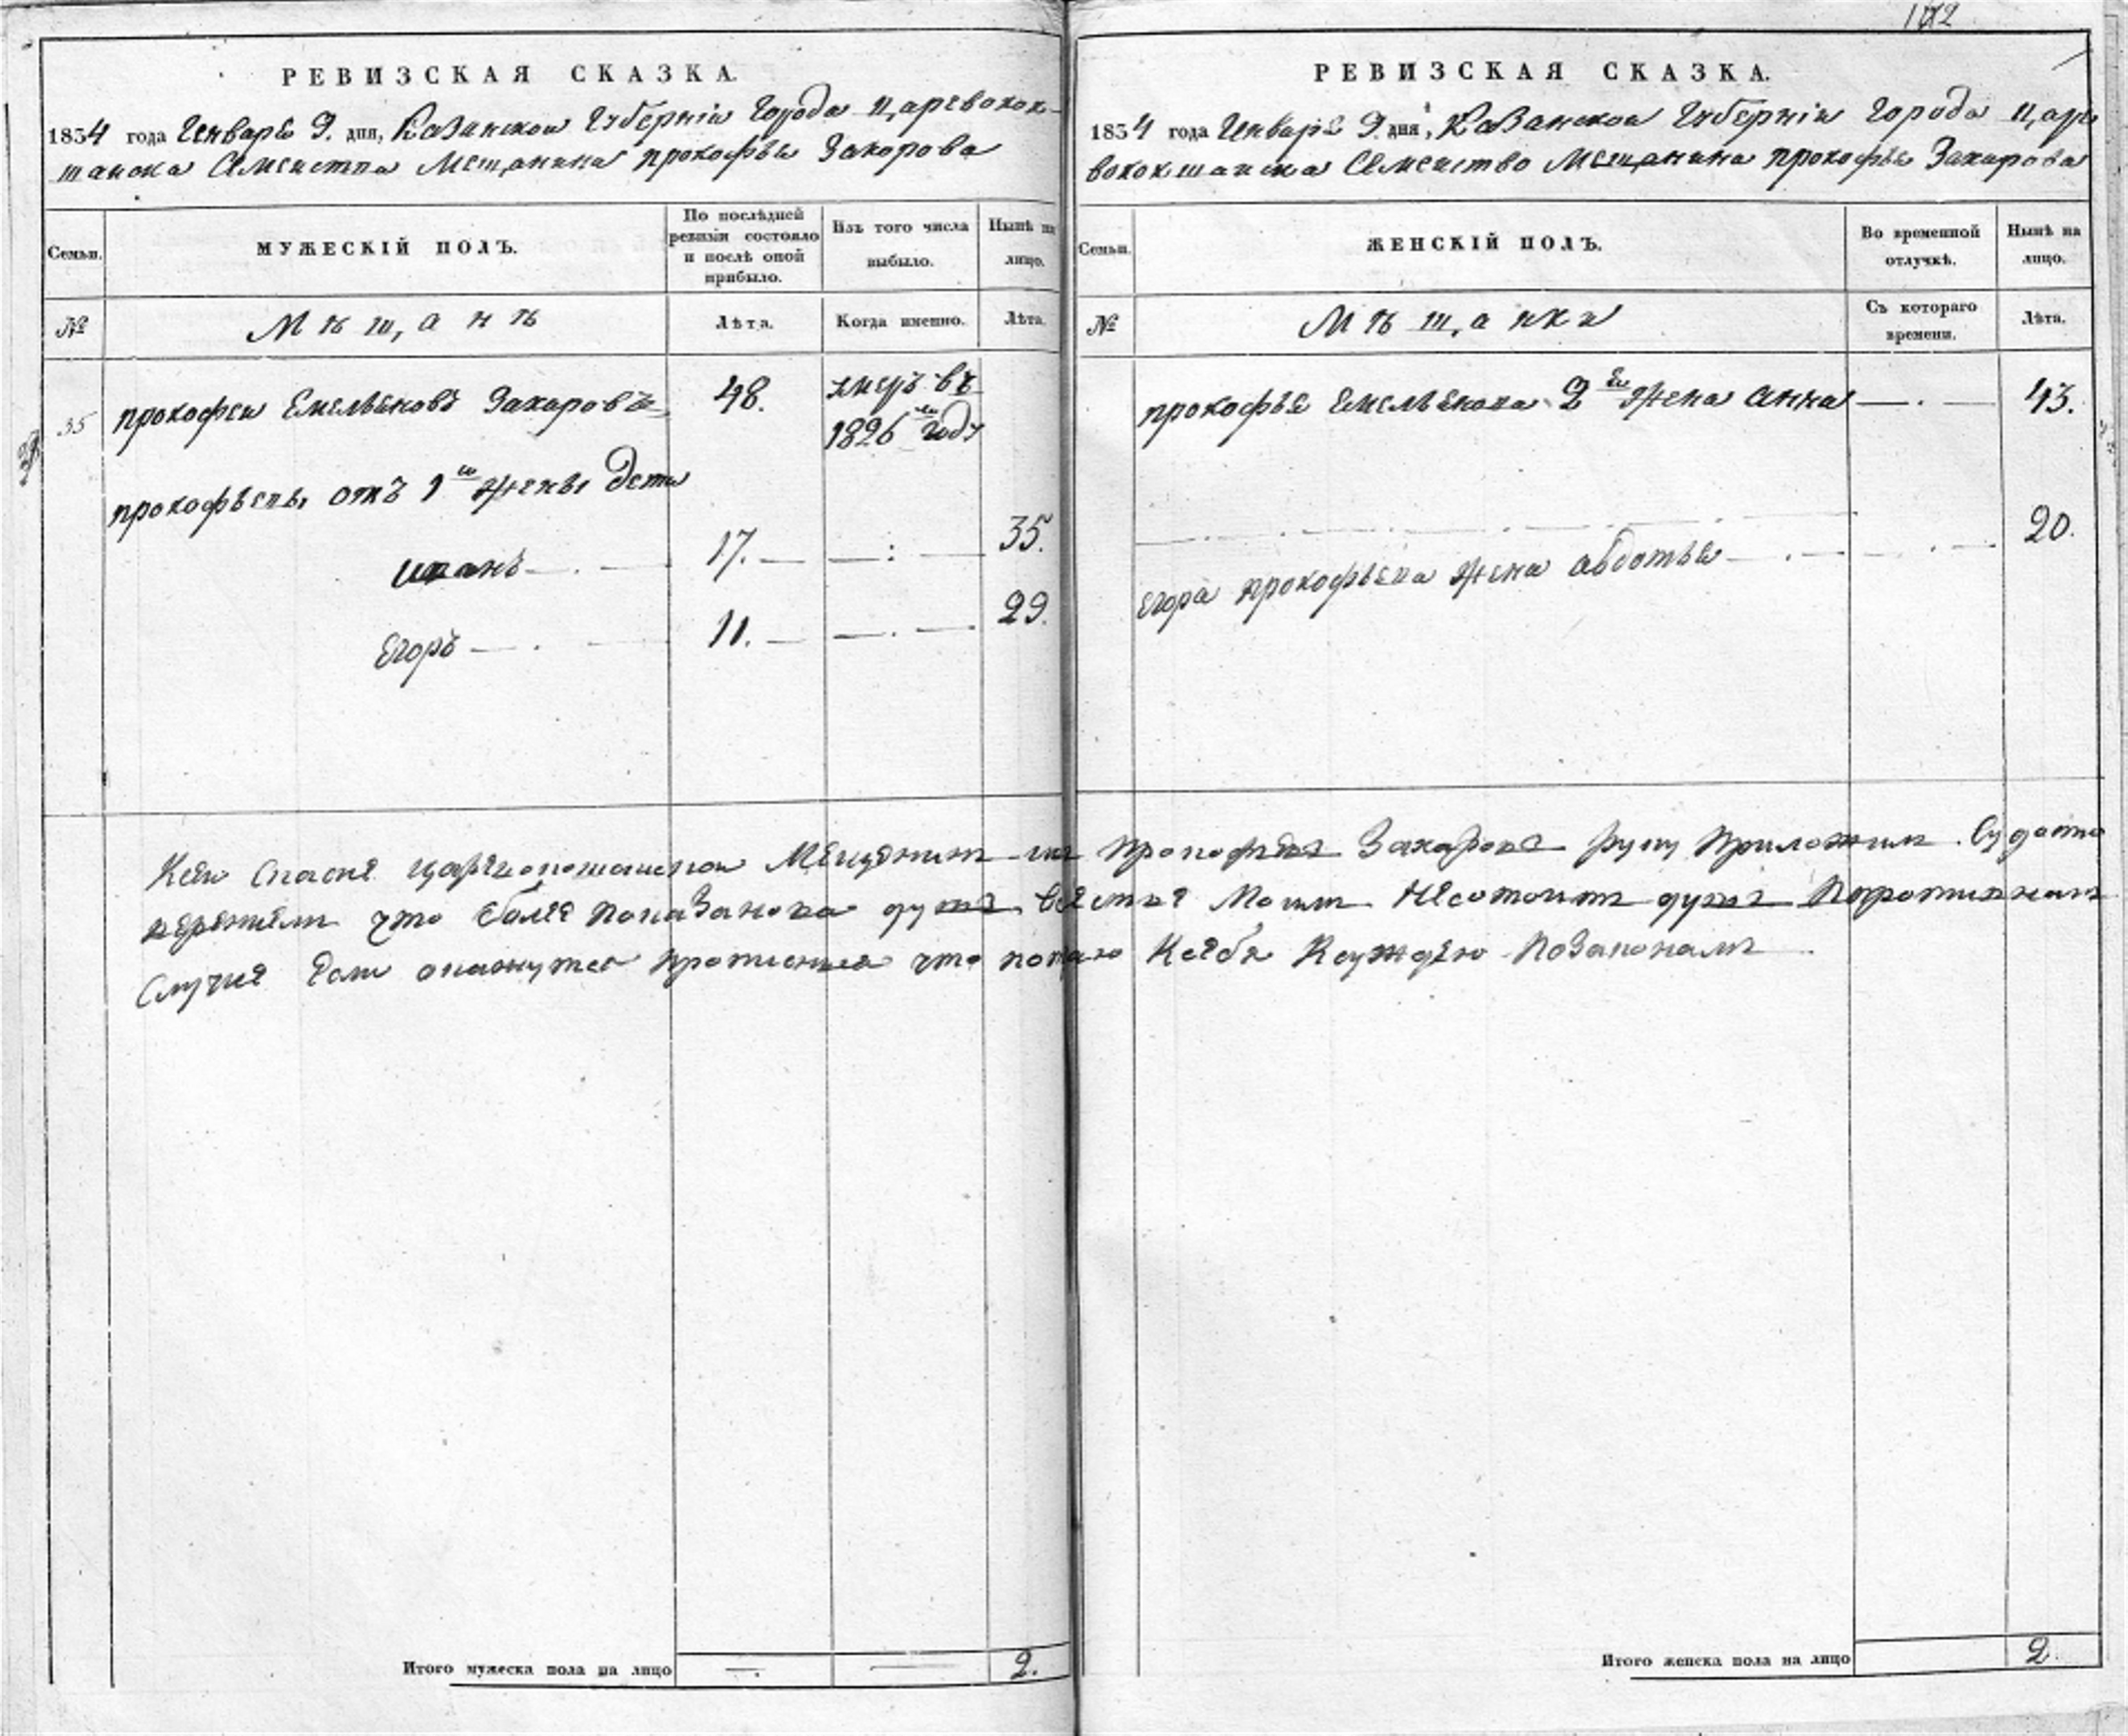 РЕВИЗСКАЯ СКАЗКА.
1834 года Генваря 9. дня, Казанской Губерніи Города Царевокок-
шайска Семейства Мещанина прокофья Захарова
Семьи.
МУЖЕСКІЙ ПОЛЪ.
По послѣдней ревизіи состояло и послѣ оной прибыло.
Изъ того числа выбыло.
Нынѣ на лицо.
№
Мѣщанѣ
Лѣта.
Когда именно.
Лѣта.
35 прокофей Емельяновъ Захаровъ 48. умеръ въ 1826 м году
прокофьевы отъ 1 й жены дети
иванъ 17. 35.
Егоръ 11. 29.
Итого мужеска пола на лицо 2.
182
РЕВИЗСКАЯ СКАЗКА.
1834 года Генваря 9. дня, Казанской Губерніи Города Царе
вококшайска Семейство Мещанина прокофья Захарова
Семьи.
ЖЕНСКІЙ ПОЛЪ.
Во временной отлучкѣ.
Нынѣ на лицо.
№
Мѣщанки
Съ котораго времени.
Лѣта.
прокофья Емельянова 2 я жена анна 43.
Егора прокофьева жена авдотья 20.
Ксей Сказке Мещенин Прокофей Захаров руку Приложил
что более показанова душ в семье Моей Несотоит душ
Случае Если окажутся Ксебя Ксуждею Позаконам
Итого женска пола на лицо 2.